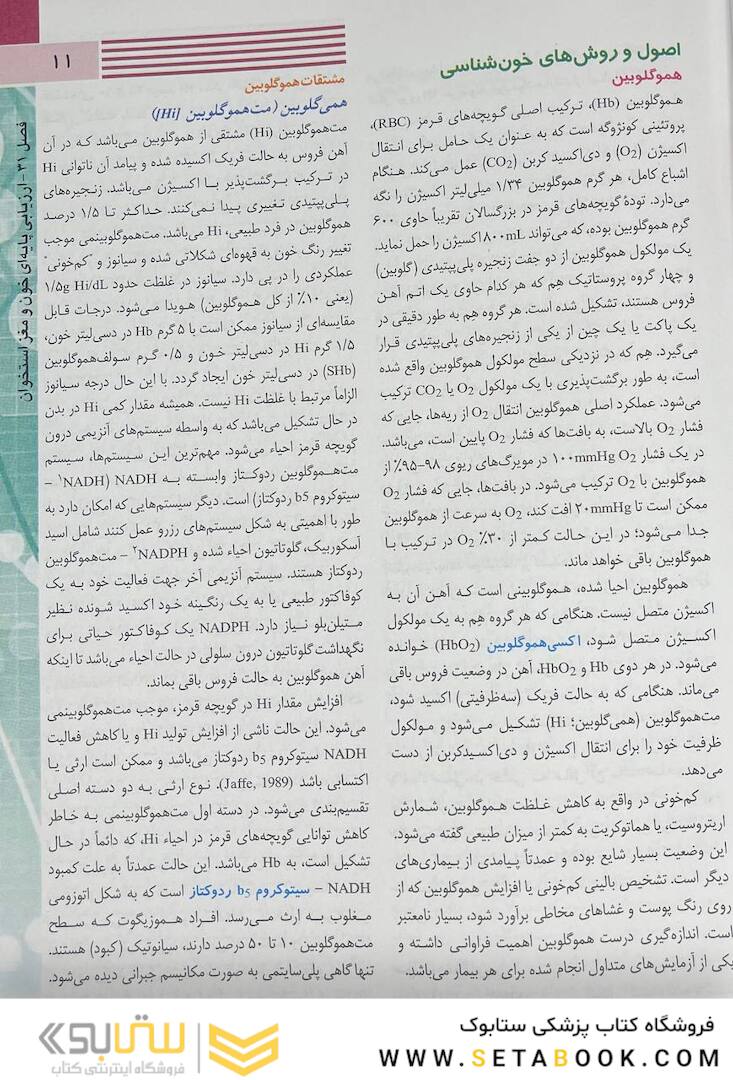 ۱۱
فصل ۳۱ - ارزیابی پایه‌ای خون و مغز استخوان
اصول و روش‌های خون‌شناسی
هموگلوبین
هموگلوبین (Hb)، ترکیب اصلی گویچه‌های قرمز (RBC)،
پروتئینی کونژوگه است که به عنوان یک حامل برای انتقال
اکسیژن (O2) و دی‌اکسید کربن (CO2) عمل می‌کند. هنگام
اشباع کامل، هر گرم هموگلوبین ۱/۳۴ میلی‌لیتر اکسیژن را نگه
می‌دارد. تودهٔ گویچه‌های قرمز در بزرگسالان تقریباً حاوی ۶۰۰
گرم هموگلوبین بوده، که می‌تواند ۸۰۰mL اکسیژن را حمل نماید.
یک مولکول هموگلوبین از دو جفت زنجیره پلی‌پپتیدی (گلوبین)
و چهار گروه پروستاتیک هم که هر کدام حاوی یک اتم آهن
فروس هستند، تشکیل شده است. هر گروه هم به طور دقیقی در
یک پاکت یا یک چین از یکی از زنجیره‌های پلی‌پپتیدی قرار
می‌گیرد. هم که در نزدیکی سطح مولکول هموگلوبین واقع شده
است، به طور برگشت‌پذیری با یک مولکول O2 یا CO2 ترکیب
می‌شود. عملکرد اصلی هموگلوبین انتقال O2 از ریه‌ها، جایی که
فشار O2 بالاست، به بافت‌ها که فشار O2 پایین است، می‌باشد.
در یک فشار O2 ۱۰۰mmHg در مویرگ‌های ریوی ۹۸-۹۵٪ از
هموگلوبین با O2 ترکیب می‌شود. در بافت‌ها، جایی که فشار O2
ممکن است تا ۲۰mmHg افت کند، O2 به سرعت از هموگلوبین
جدا می‌شود؛ در این حالت کمتر از ۳۰٪ O2 در ترکیب با
هموگلوبین باقی خواهد ماند.
هموگلوبین احیا شده، هموگلوبینی است که آهن آن به
اکسیژن متصل نیست. هنگامی که هر گروه هم به یک مولکول
اکسیژن متصل شود، اکسی‌هموگلوبین (HbO2) خوانده
می‌شود. در هر دوی Hb و HbO2، آهن در وضعیت فروس باقی
می‌ماند. هنگامی که به حالت فریک (سه‌ظرفیتی) اکسید شود،
مت‌هموگلوبین (همی‌گلوبین؛ Hi) تشکیل می‌شود و مولکول
ظرفیت خود را برای انتقال اکسیژن و دی‌اکسیدکربن از دست
می‌دهد.
کم‌خونی در واقع به کاهش غلظت هموگلوبین، شمارش
اریتروسیت، یا هماتوکریت به کمتر از میزان طبیعی گفته می‌شود.
این وضعیت بسیار شایع بوده و عمدتاً پیامدی از بیماری‌های
دیگر است. تشخیص بالینی کم‌خونی یا افزایش هموگلوبین که از
روی رنگ پوست و غشاهای مخاطی برآورد شود، بسیار نامعتبر
است. اندازه‌گیری درست هموگلوبین اهمیت فراوانی داشته و
یکی از آزمایش‌های متداول انجام شده برای هر بیمار می‌باشد.
مشتقات هموگلوبین
همی‌گلوبین (مت‌هموگلوبین [Hi])
مت‌هموگلوبین (Hi) مشتقی از هموگلوبین می‌باشد که در آن
آهن فروس به حالت فریک اکسیده شده و پیامد آن ناتوانی Hi
در ترکیب برگشت‌پذیر با اکسیژن می‌باشد. زنجیره‌های
پلی‌پپتیدی تغییری پیدا نمی‌کنند. حداکثر تا ۱/۵ درصد
هموگلوبین در فرد طبیعی، Hi می‌باشد. مت‌هموگلوبینمی موجب
تغییر رنگ خون به قهوه‌ای شکلاتی شده و سیانوز و "کم‌خونی"
عملکردی را در پی دارد. سیانوز در غلظت حدود ۱/۵g Hi/dL
(یعنی ۱۰٪ از کل هموگلوبین) هویدا می‌شود. درجات قابل
مقایسه‌ای از سیانوز ممکن است با ۵ گرم Hb در دسی‌لیتر خون،
۱/۵ گرم Hi در دسی‌لیتر خون و ۰/۵ گرم سولف‌هموگلوبین
(SHb) در دسی‌لیتر خون ایجاد گردد. با این حال درجه سیانوز
الزاماً مرتبط با غلظت Hi نیست. همیشه مقدار کمی Hi در بدن
در حال تشکیل می‌باشد که به واسطه سیستم‌های آنزیمی درون
گویچه قرمز احیاء می‌شود. مهم‌ترین این سیستم‌ها، سیستم
مت‌هموگلوبین ردوکتاز وابسته به NADH (NADH۱ –
سیتوکروم b5 ردوکتاز) است. دیگر سیستم‌هایی که امکان دارد به
طور با اهمیتی به شکل سیستم‌های رزرو عمل کنند شامل اسید
آسکوربیک، گلوتاتیون احیاء شده و NADPH۲ – مت‌هموگلوبین
ردوکتاز هستند. سیستم آنزیمی آخر جهت فعالیت خود به یک
کوفاکتور طبیعی یا به یک رنگینه خود اکسید شونده نظیر
متیلن‌بلو نیاز دارد. NADPH یک کوفاکتور حیاتی برای
نگهداشت گلوتاتیون درون سلولی در حالت احیاء می‌باشد تا اینکه
آهن هموگلوبین به حالت فروس باقی بماند.
افزایش مقدار Hi در گویچه قرمز، موجب مت‌هموگلوبینمی
می‌شود. این حالت ناشی از افزایش تولید Hi و یا کاهش فعالیت
NADH سیتوکروم b5 ردوکتاز می‌باشد و ممکن است ارثی یا
اکتسابی باشد (Jaffe, 1989). نوع ارثی به دو دسته اصلی
تقسیم‌بندی می‌شود. در دسته اول مت‌هموگلوبینمی به خاطر
کاهش توانایی گویچه‌های قرمز در احیاء Hi، که دائماً در حال
تشکیل است، به Hb می‌باشد. این حالت عمدتاً به علت کمبود
NADH – سیتوکروم b5 ردوکتاز است که به شکل اتوزومی
مغلوب به ارث می‌رسد. افراد هموزیگوت که سطح
مت‌هموگلوبین ۱۰ تا ۵۰ درصد دارند، سیانوتیک (کبود) هستند.
تنها گاهی پلی‌سایتمی به صورت مکانیسم جبرانی دیده می‌شود.
فروشگاه کتاب پزشکی ستابوک
WWW.SETABOOK.COM
ستابوک
فروشگاه اینترنتی کتاب